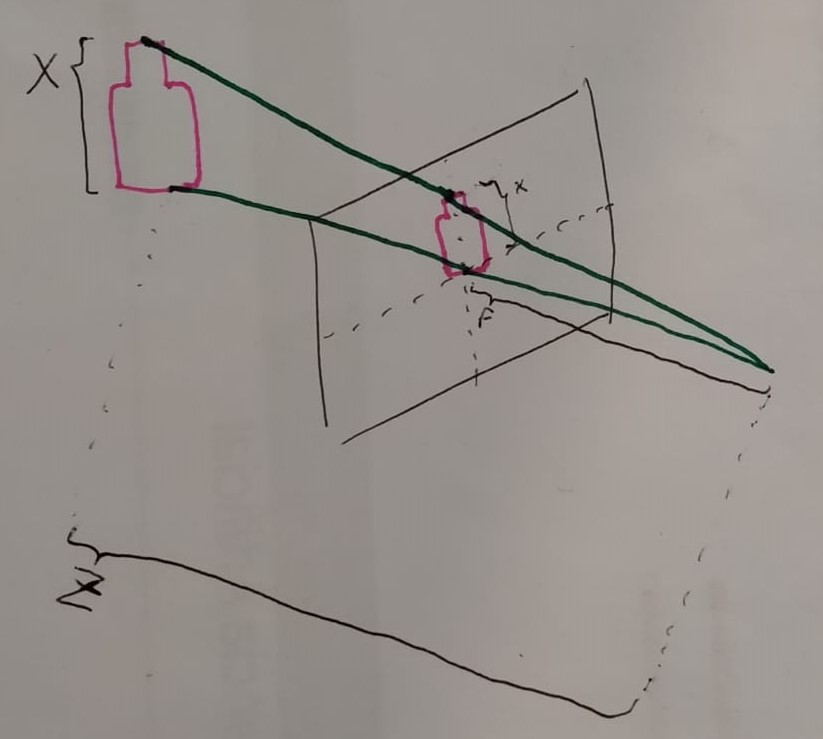 X
x
F
Z